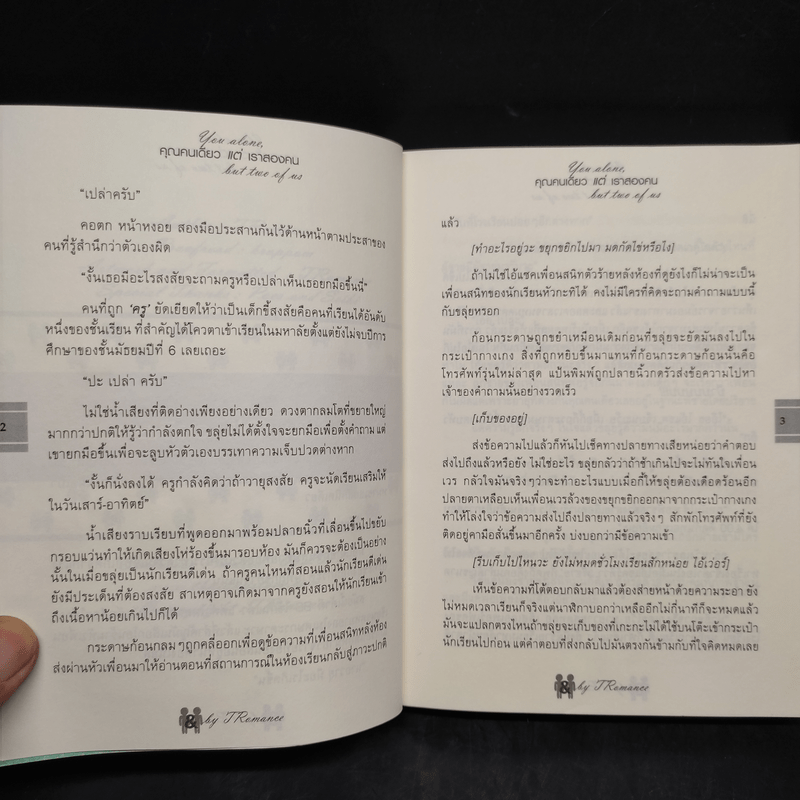 You alone,
คุณคนเดียว แต่ เราสองคน
but two of us
"เปล่าครับ"
คอตก หน้าหงอย สองมือประสานกันไว้ด้านหน้าตามประสาของ
คนที่รู้สำนึกว่าตัวเองผิด
"งั้นเธอมีอะไรสงสัยจะถามครูหรือเปล่าเห็นเธอยกมือขึ้นนี่"
คนที่ถูก 'ครู' ยัดเยียดให้ว่าเป็นเด็กขี้สงสัยคือคนที่เรียนได้อันดับ
หนึ่งของชั้นเรียน ที่สำคัญได้โควตาเข้าเรียนในมหาลัยตั้งแต่ยังไม่จบปีการ
ศึกษาของชั้นมัธยมปีที่ 6 เลยเถอะ
"ปะ เปล่า ครับ"
ไม่ใช่น้ำเสียงที่ติดอ่างเพียงอย่างเดียว ดวงตากลมโตที่ขยายใหญ่
มากกว่าปกติให้รู้ว่ากำลังตกใจ ขลุ่ยไม่ได้ตั้งใจจะยกมือเพื่อตั้งคำถาม แต่
เขายกมือขึ้นเพื่อจะลูบหัวตัวเองบรรเทาความเจ็บปวดต่างหาก
"งั้นก็นั่งลงได้ ครูกำลังคิดว่าถ้าวายุสงสัย ครูจะนัดเรียนเสริมให้
ในวันเสาร์-อาทิตย์"
น้ำเสียงราบเรียบที่พูดออกมาพร้อมปลายนิ้วที่เลื่อนขึ้นไปขยับ
กรอบแว่นทำให้เกิดเสียงโห่ร้องขึ้นมารอบห้อง มันก็ควรจะต้องเป็นอย่าง
นั้นในเมื่อขลุ่ยเป็นนักเรียนดีเด่น ถ้าครูคนไหนที่สอนแล้วนักเรียนดีเด่น
ยังมีประเด็นที่ต้องสงสัย สาเหตุอาจเกิดมาจากครูยังสอนให้นักเรียนเข้า
ถึงเนื้อหาน้อยเกินไปก็ได้
กระดาษก้อนกลมๆถูกคลี่ออกเพื่อดูข้อความที่เพื่อนสนิทหลังห้อง
ส่งผ่านหัวเพื่อนมาให้อ่านตอนที่สถานการณ์ในห้องเรียนกลับสู่ภาวะปกติ
& by TRomance
2
You alone,
คุณคนเดียว แต่ เราสองคน
but two of us
แล้ว
[ทำอะไรอยู่วะ ขยุกขยิกไปมา มดกัดไข่หรือไง]
ถ้าไม่ใช่ไอ้แซคเพื่อนสนิทตัวร้ายหลังห้องที่ดูยังไงก็ไม่น่าจะเป็น
เพื่อนสนิทของนักเรียนหัวกะทิได้ คงไม่มีใครที่คิดจะถามคำถามแบบนี้
กับขลุ่ยหรอก
ก้อนกระดาษถูกขยำเหมือนเดิมก่อนที่ขลุ่ยจะยัดมันลงไปใน
กระเป๋ากางเกง สิ่งที่ถูกหยิบขึ้นมาแทนที่ก้อนกระดาษก้อนนั้นคือ
โทรศัพท์รุ่นใหม่ล่าสุด แป้นพิมพ์ถูกปลายนิ้วกดรัวส่งข้อความไปหา
เจ้าของคำถามนั้นอย่างรวดเร็ว
[เก็บของอยู่]
ส่งข้อความไปแล้วก็หันไปเช็คทางปลายทางเสียหน่อยว่าคำตอบ
ส่งไปถึงแล้วหรือยัง ไม่ใช่อะไร ขลุ่ยกลัวว่าถ้าช้าเกินไปจะไม่ทันใจเพื่อน
เวร กลัวใจมันจริงๆว่าจะทำอะไรแบบเมื่อกี้ให้ขลุ่ยต้องเดือดร้อนอีก
ปลายตาเหลือบเห็นเพื่อนเวรล้วงของขยุกขยิกออกมาจากกระเป๋ากางเกง
ทำให้โล่งใจว่าข้อความส่งไปถึงปลายทางแล้วจริงๆ สักพักโทรศัพท์ที่ยัง
ติดอยู่คามือสั่นขึ้นมาอีกครั้ง บ่งบอกว่ามีข้อความเข้า
[รีบเก็บไปไหนวะ ยังไม่หมดชั่วโมงเรียนสักหน่อย ไอ้เว่อร์]
เห็นข้อความที่โต้ตอบกลับมาแล้วต้องส่ายหน้าด้วยความระอา ยัง
ไม่หมดเวลาเรียนก็จริงแต่นาฬิกาบอกว่าเหลืออีกไม่กี่นาทีก็จะหมดแล้ว
มันจะแปลกตรงไหนถ้าขลุ่ยจะเก็บของที่เกะกะไม่ได้ใช้บนโต๊ะเข้ากระเป๋า
นักเรียนไปก่อน แต่คำตอบที่ส่งกลับไปมันตรงกันข้ามกับที่ใจคิดหมดเลย
& by TRomance
3